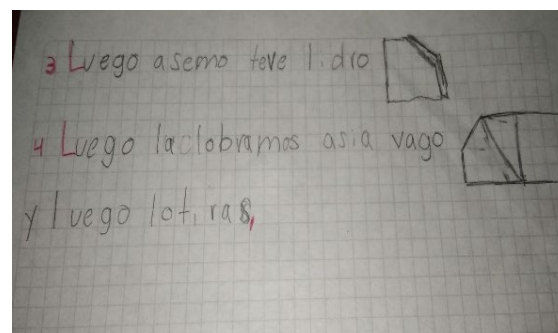 3 Luego asemo teve lidro
4 Luego laclobramos asia vago
y luego lotiras,